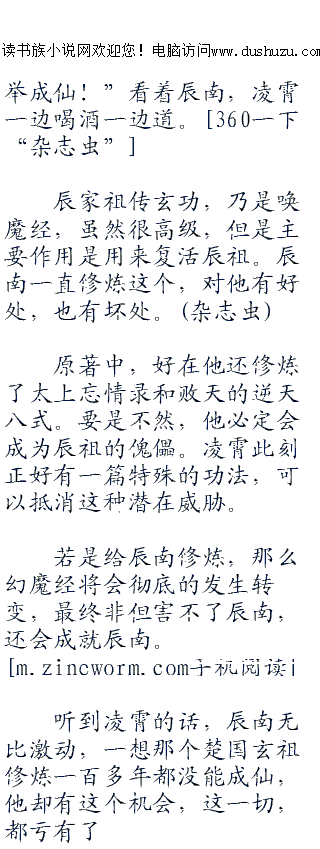 读书族小说网欢迎您！电脑访问www.dushuzu.com
举成仙！”看着辰南，凌霄
一边喝酒一边道。[360一下
“杂志虫”]
辰家祖传玄功，乃是唤
魔经，虽然很高级，但是主
要作用是用来复活辰祖。辰
南一直修炼这个，对他有好
处，也有坏处。(杂志虫)
原著中，好在他还修炼
了太上忘情录和败天的逆天
八式。要是不然，他必定会
成为辰祖的傀儡。凌霄此刻
正好有一篇特殊的功法，可
以抵消这种潜在威胁。
若是给辰南修炼，那么
幻魔经将会彻底的发生转
变，最终非但害不了辰南，
还会成就辰南。
[m.zincworm.com手机阅读
听到凌霄的话，辰南无
比激动，一想那个楚国玄祖
修炼一百多年都没能成仙，
他却有这个机会，这一切，
都亏有了